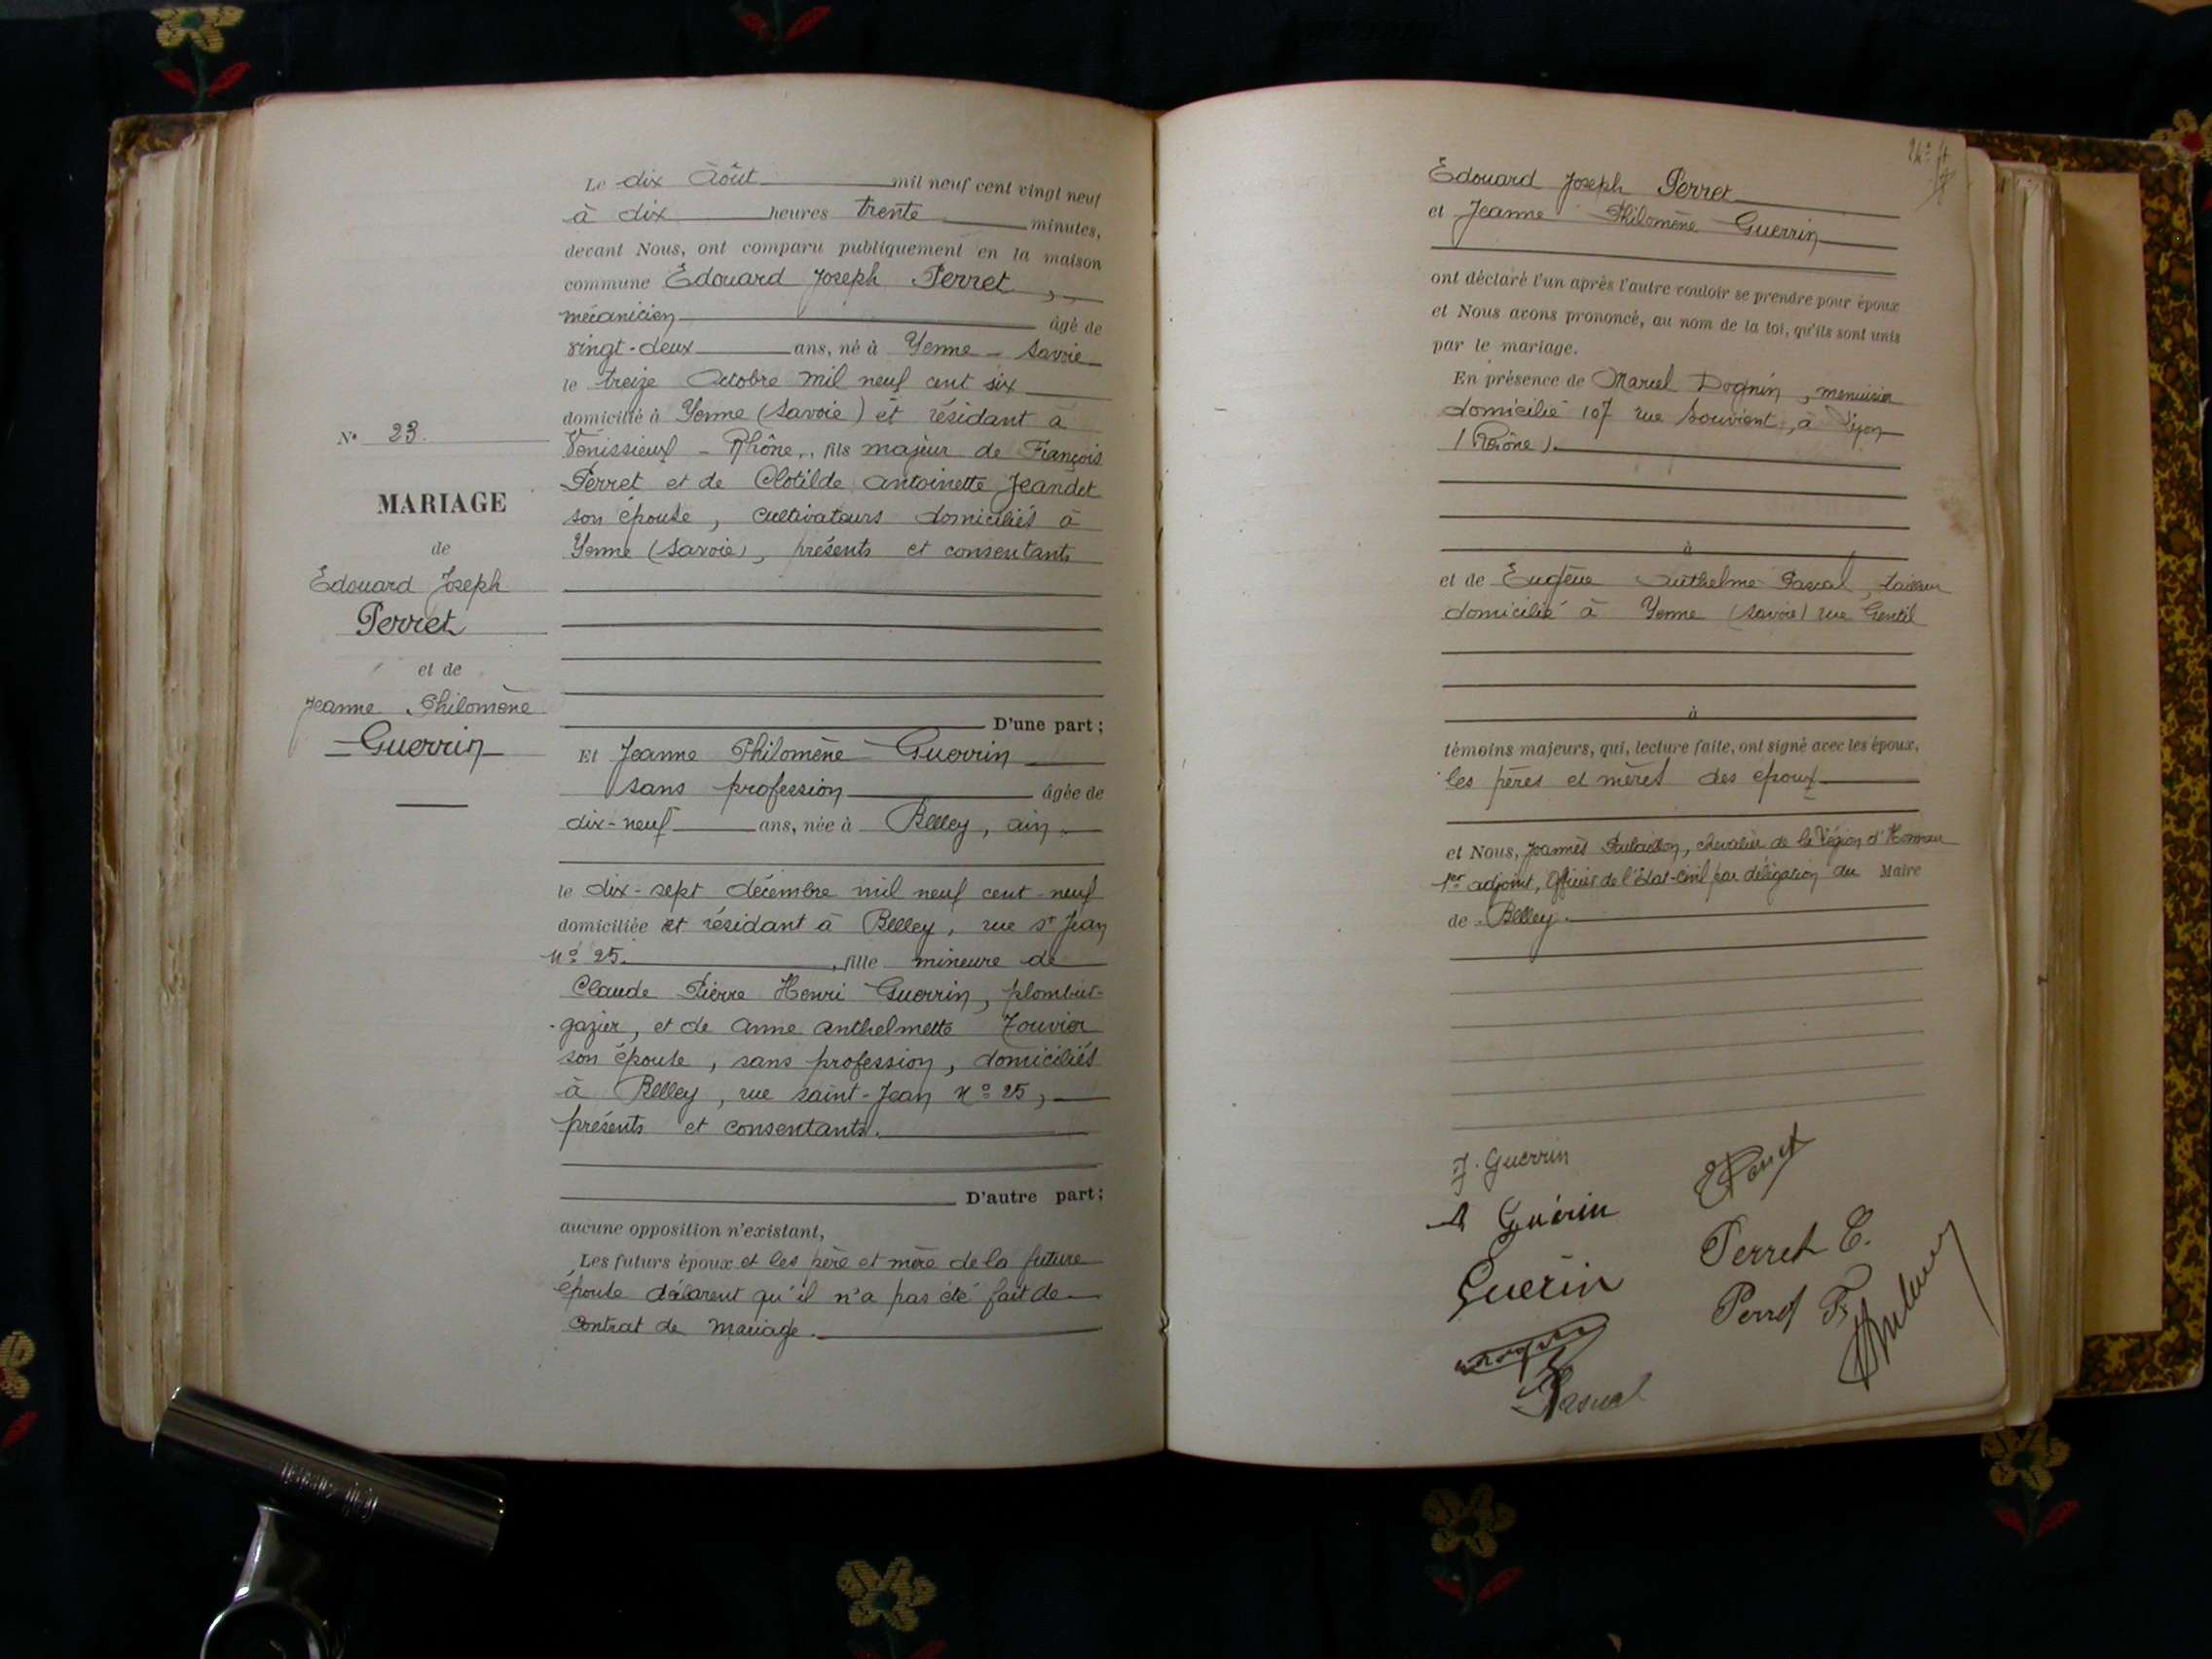 Le dix Août mil neuf cent vingt neuf
à dix heures trente minutes,
devant Nous, ont comparu publiquement en la maison
commune Édouard Joseph Perret,
mécanicien âgé de
vingt-deux ans, né à Yenne - Savoie
le treize Octobre mil neuf cent six
domicilié à Yenne (Savoie) et résidant à
Vénissieux - Rhône, fils majeur de François
Perret et de Clotilde Antoinette Jeandet
son épouse, cultivateurs domiciliés à
Yenne (Savoie), présents et consentants
N° 23.
MARIAGE
de
Édouard Joseph
Perret
et de
Jeanne Philomène
Guerrin
D'une part;
Et Jeanne Philomène Guerrin
sans profession âgée de
dix-neuf ans, née à Belley, ain
le dix-sept décembre mil neuf cent neuf
domiciliée et résidant à Belley, rue St Jean
N° 25. , fille mineure de
Claude Pierre Henri Guerrin, plombier-
-gazier, et de Anne Anthelmette
son épouse, sans profession, domiciliés
à Belley, rue saint-Jean N° 25,
présents et consentants.
D'autre part;
aucune opposition n'existant,
Les futurs époux et les père et mère de la future
épouse déclarent qu'il n'a pas été fait de
contrat de mariage.
Édouard Joseph Perret
et Jeanne Philomène Guerrin
ont déclaré l'un après l'autre vouloir se prendre pour époux
et Nous avons prononcé, au nom de la loi, qu'ils sont unis
par le mariage.
En présence de Marcel Dognin, menuisier
domicilié 107 rue Souvient, à Lyon
(Rhône).
à
et de Eugène Anthelme Pascal,
domicilié à Yenne (Savoie) rue Gentil
à
témoins majeurs, qui, lecture faite, ont signé avec les époux,
les pères et mères des époux
et Nous, Joannès, chevalier de la Légion d'Honneur
1er adjoint, Officier de l'État-Civil par délégation du Maire
de Belley.
J. Guerrin
A Guérin
Perret C.
Guérin
Perret F
Pascal